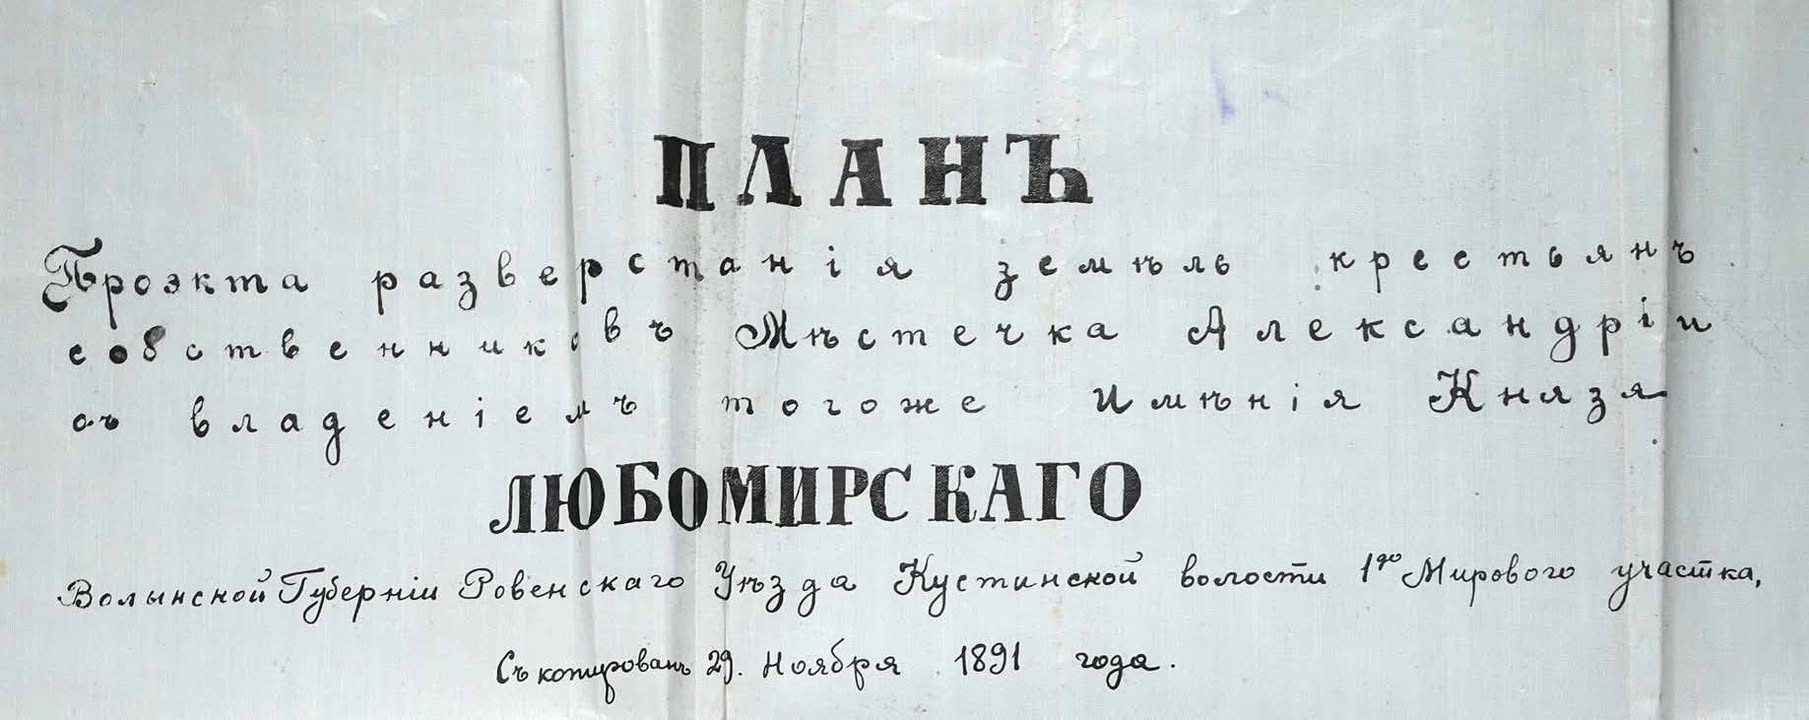 ПЛАНЪ
Проэкта разверстанія земѣль крестьянъ
собственниковъ Мѣстечка Александріи
съ владеніемъ тогоже Имѣнія Князя
ЛЮБОМИРСКАГО
Волынской Губерніи Ровенскаго Уѣзда Кустинской волости 1го Мирового участка,
Съкопированъ 29. Ноября 1891 года.